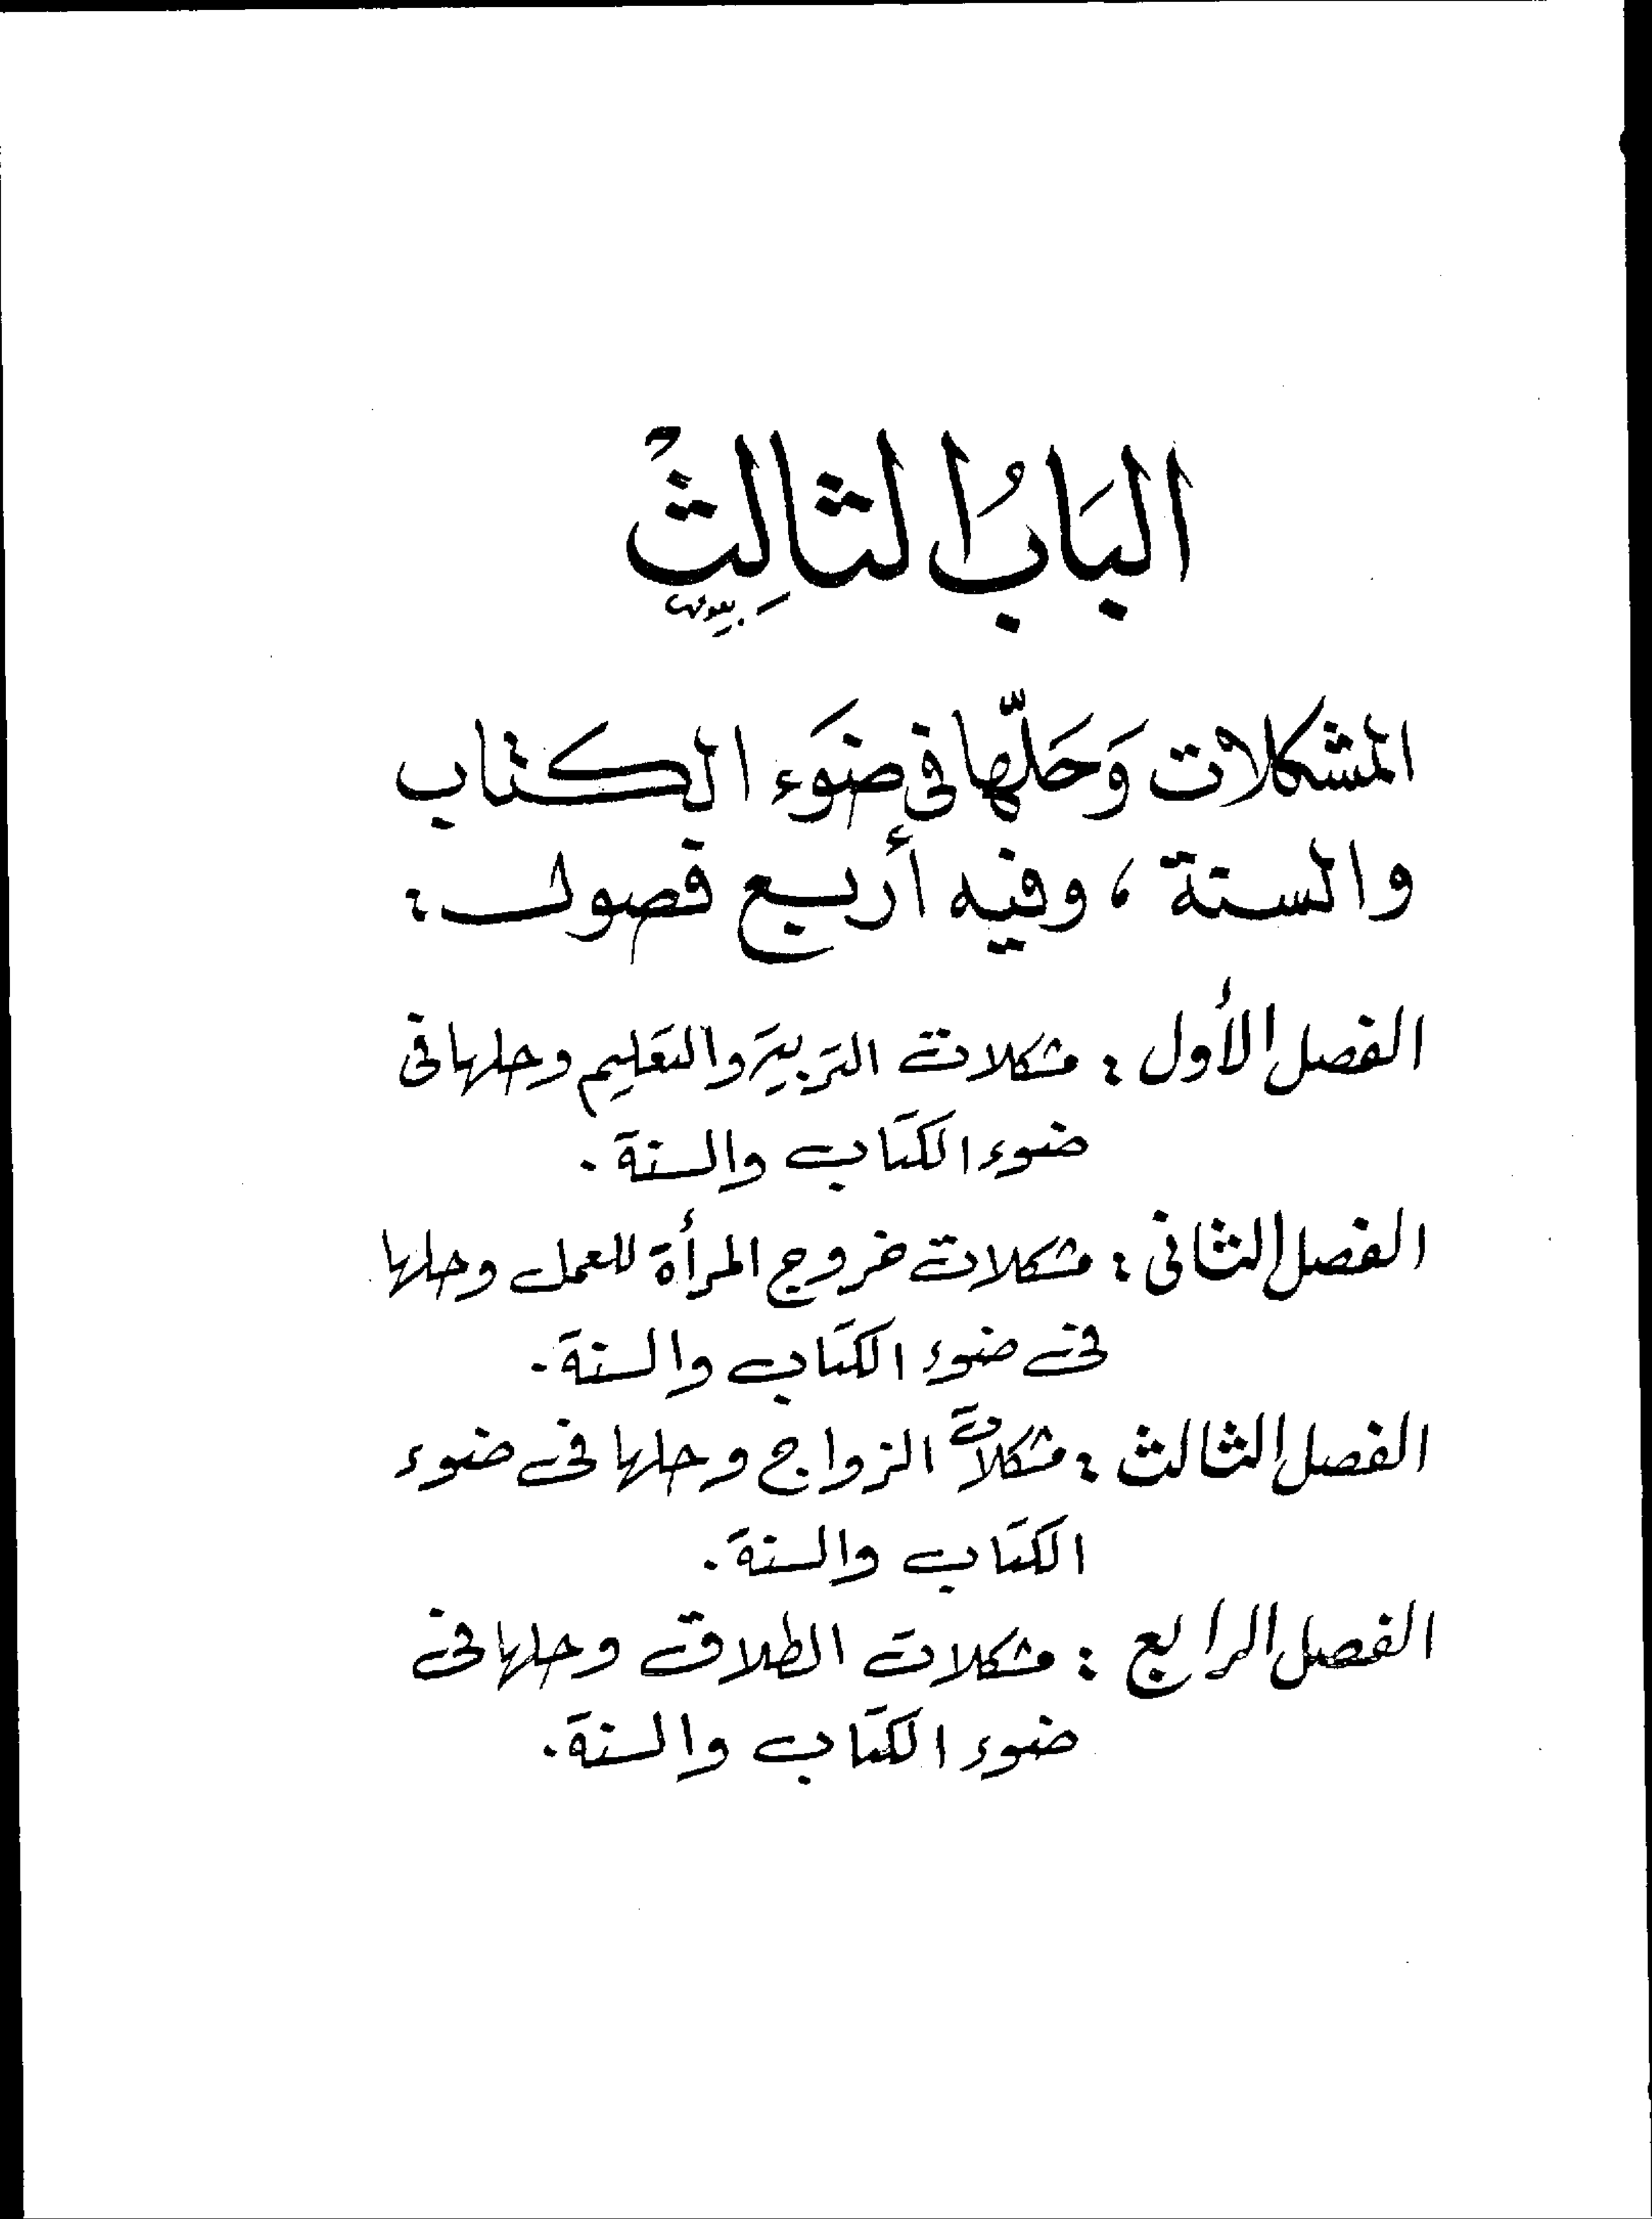 البَابُ الثالِثُ
المشكلات وَحَلّها فى ضَوَء الكتاب
والسنة ، وفيه أربع فصول :
الفصل الأول : مشكلات التربية والتعليم وحلها فى
ضوء الكتاب والسنة .
الفصل الثانى : مشكلات خروج المرأة للعمل وحلها
فى ضوء الكتاب والسنة .
الفصل الثالث : مشكلات الزواج وحلها فى ضوء
الكتاب والسنة .
الفصل الرابع : مشكلات الطلاق وحلها فى
ضوء الكتاب والسنة .